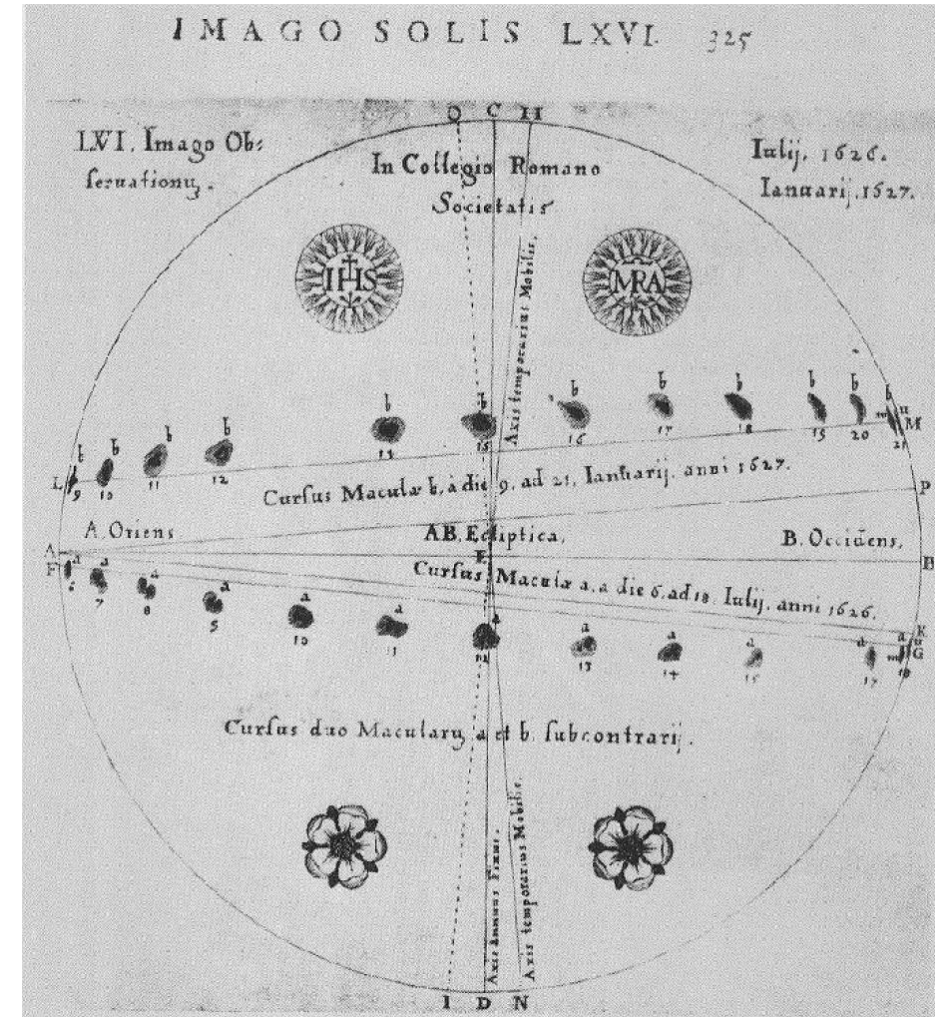 IMAGO SOLIS LXVI. 325
O C H
LVI. Imago Ob:
seruationũ.
In Collegio Romano
Societatis
Iulij. 1626.
Ianuarij. 1627.
IHS
MRA
Axis temporarius Mobilis.
b b b b b b b b b b b b
9 10 11 12 14 15 16 17 18 19 20 21
L
m n M
Cursus Maculæ b, à die 9. ad 21, Ianuarij, anni 1627.
P
A. Oriens
AB. Ecliptica.
B. Occidens.
A
E
B
F
Cursus Maculæ a, a die 6. ad 18. Iulij, anni 1626.
K
a a a a a a a a a a
6 7 8 9 10 11 12 13 14 15 17 18
m n G
Cursus duo Macularũ a et b. subcontrarij.
Axis Annuus Fixus.
Axis temporarius Mobilis.
I D N